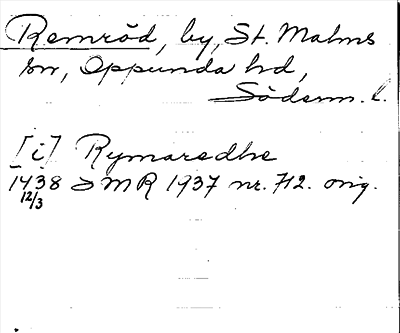 Remröd, by, St. Malms
sn, Oppunda hd,
Söderm. l.
[i] Rymaredhe
1438 SMR 1937 nr. 712. orig.
12/3